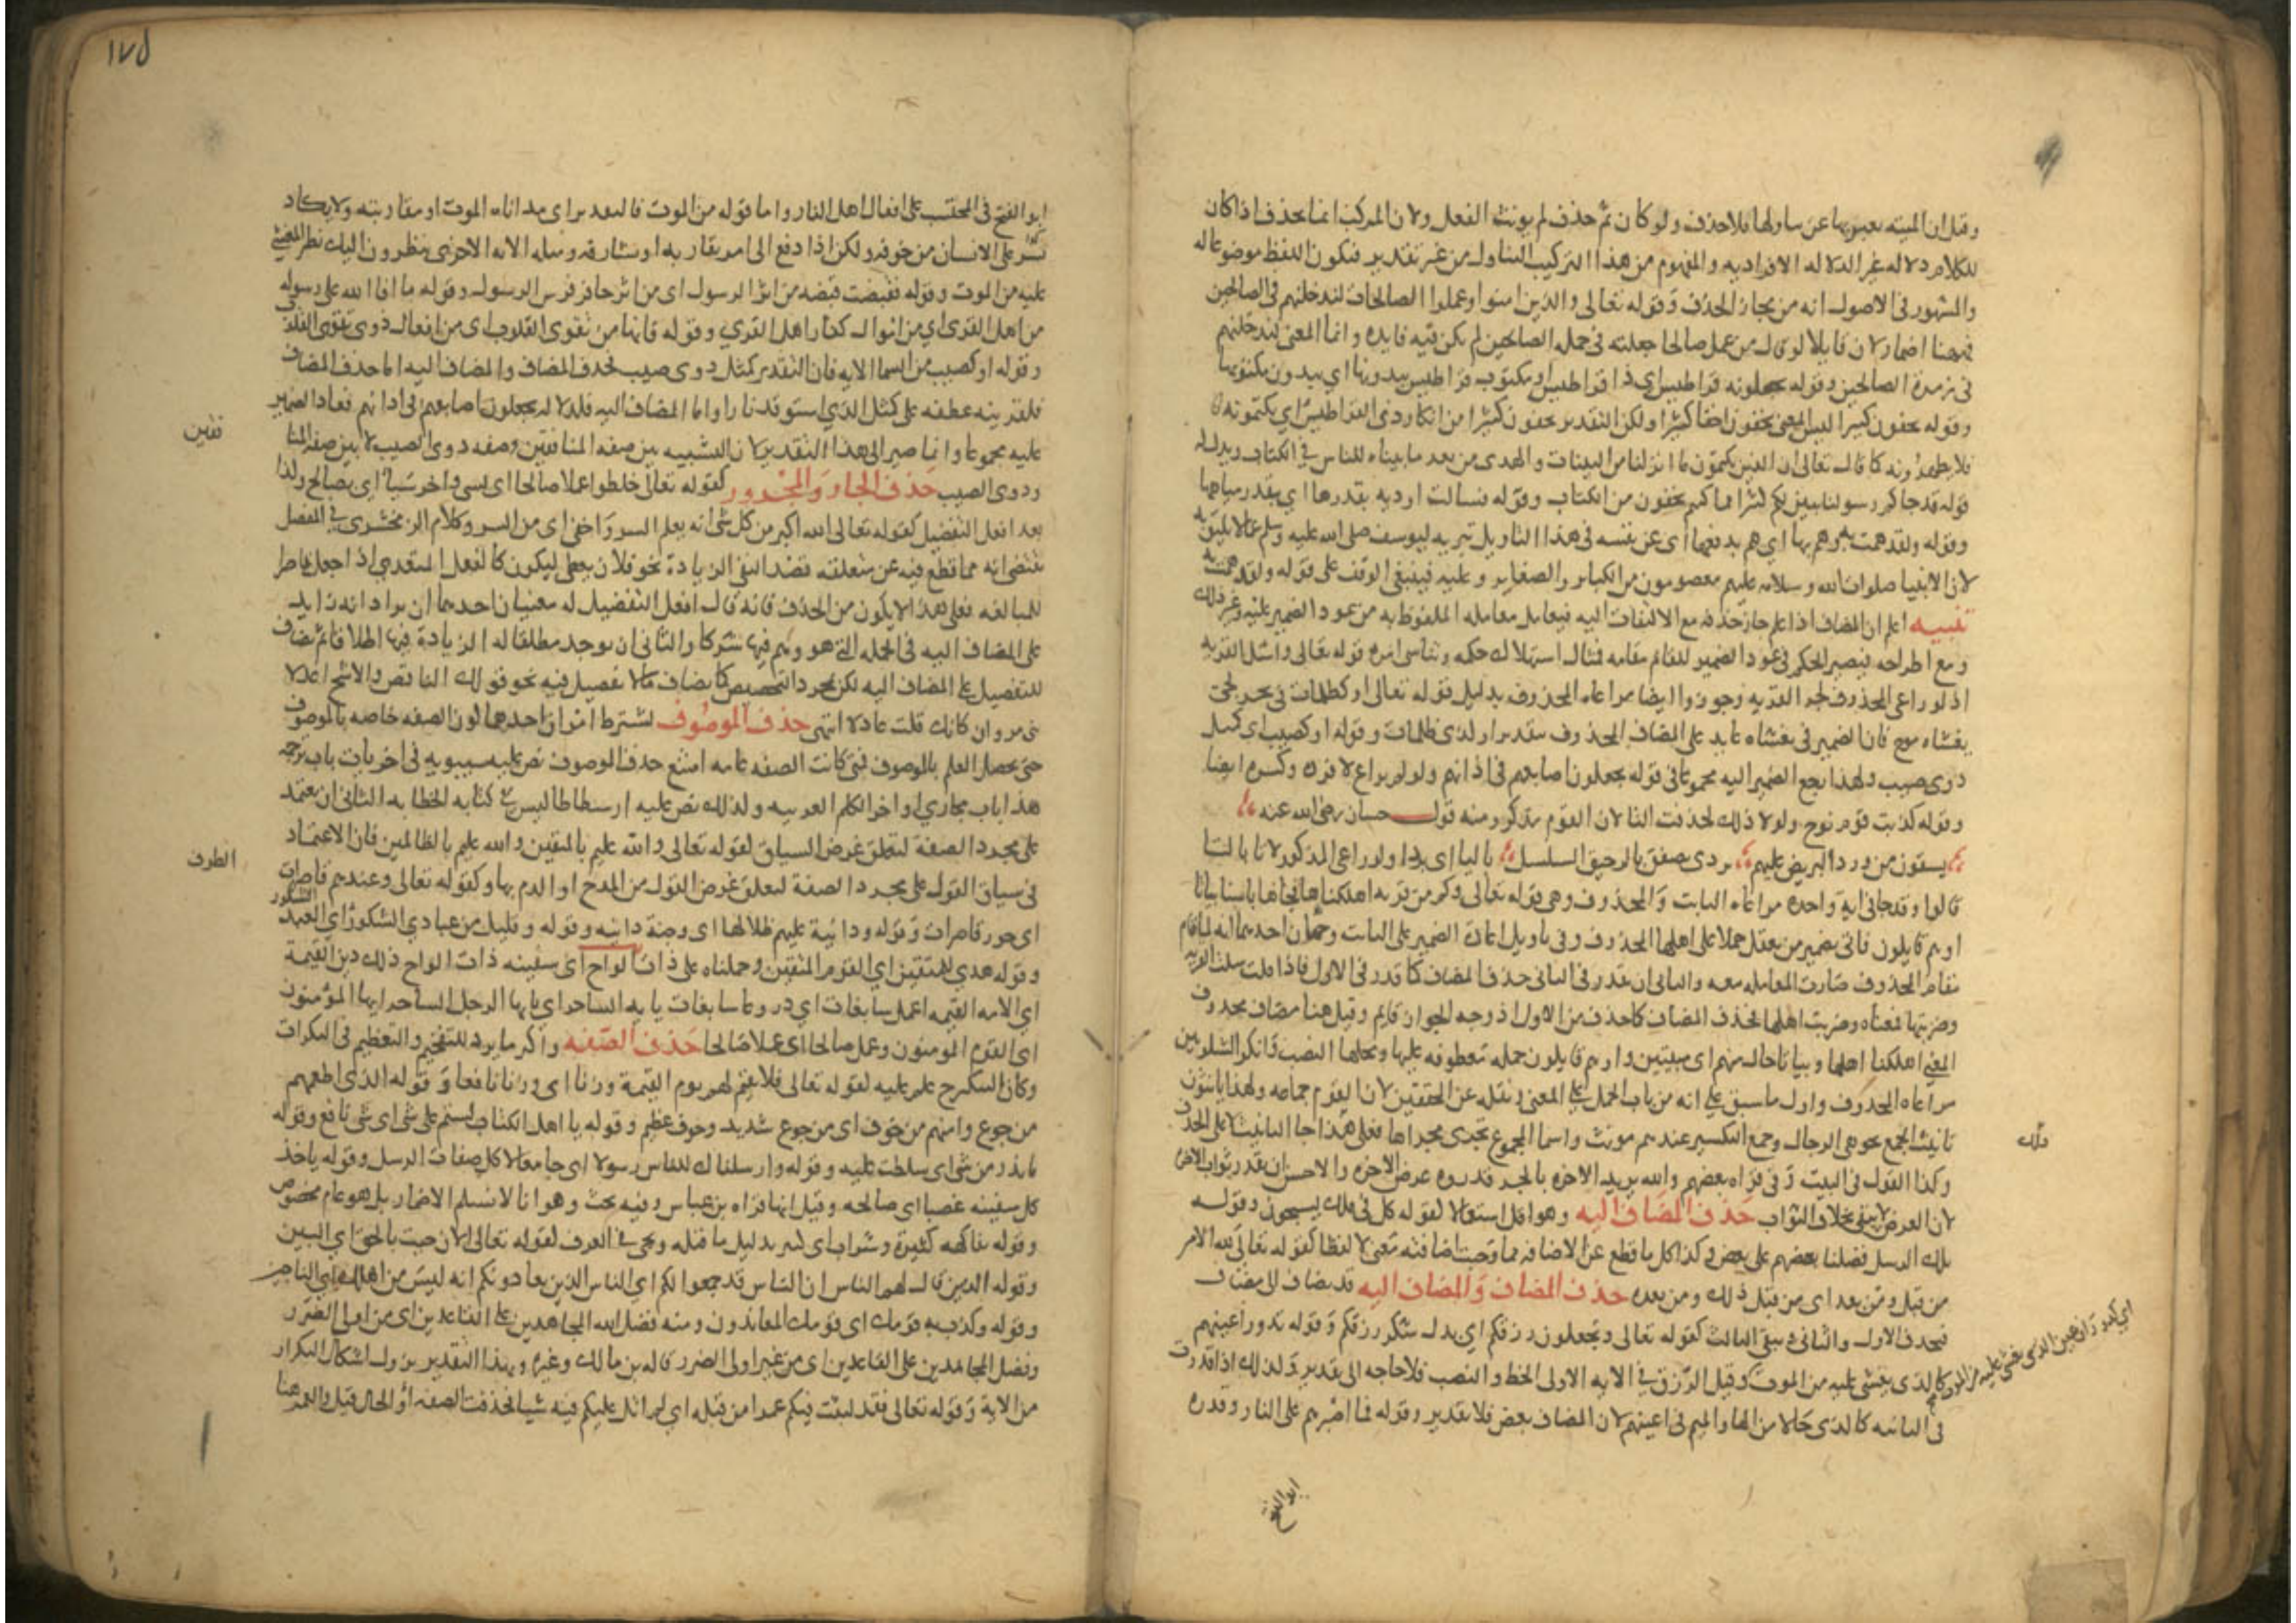 وقيل ان الميته يعبر بها عن تناولها فلا حذف ولو كان ثم حذف لم يونث الفعل ولان المركب انما يحذف اذا كان
للكلام دلاله غير الدلاله الافراديه والمفهوم من هذا التركيب التناول من غير تقدير فيكون اللفظ موضوعا له
والمشهور في الاصول انه من مجاز الحذف وقوله تعالى والذين امنوا وعملوا الصالحات لندخلنهم في الصالحين
فههنا اضمار لان قايلا لو قال من عمل صالحا جعلته في جمله الصالحين لم يكن فيه فايده وانما المعنى لندخلنهم
في زمرة الصالحين وقوله تجعلونه قراطيس اي ذا قراطيس او مكتوب قراطيس يبدونها اي يبدون مكتوبها
وقوله تخفون كثيرا ليس المعنى تخفون اخفا كثيرا ولكن التقدير تخفون كثيرا من انكار ذي القراطيس اي يكتمونه
فلا يظهرونه كما قال تعالى ان الذين يكتمون ما انزلنا من البينات والهدى من بعد ما بيناه للناس في الكتاب ويدل له
قوله قد جاكم رسولنا يبين لكم كثيرا مما كنتم تخفون من الكتاب وقوله فسالت اوديه بقدرها اي بقدر مياهها
وقوله ولقد همت به وهم بها اي هم بدفعها اي عن نفسه في هذا التاويل تبريه ليوسف صلى الله عليه وسلم عما لا يليق به
لان الانبيا صلوات الله وسلامه عليهم معصومون من الكباير والصغاير وعليه فينبغي الوقف على قوله ولقد همت به
تنبيه اعلم ان المضاف اذا علم جاز حذفه مع الالتفات اليه فيعامل معامله الملفوظ به من عود الضمير عليه وغير ذلك
ومع اطراحه فيصير الحكم في عود الضمير للقائم مقامه فمثال استهلاك حكمه وتناسي امره قوله تعالى واسئل القريه
اذ لو راعى المحذوف لجر القريه وجوزوا ايضا مراعاه المحذوف بدليل قوله تعالى او كظلمات في بحر لجي
يغشاه موج فان الضمير في يغشاه عايد على المضاف المحذوف بتقدير او لذي ظلمات وقوله او كصيب اي كمثل
ذوي صيب ولهذا رجع الضمير اليه مجموعا في قوله يجعلون اصابعهم في اذانهم ولو لم يراع لافرده وكسره ايضا
وقوله كذبت قوم نوح ولولا ذلك لحذفت التا لان القوم مذكر ومنه قول حسان رضي الله عنه
يسقون من ورد البريص عليهم بردى يصفق بالرحيق السلسل باليا اي بردا ولو راعى المذكور لاتا بالتا
قالوا وقد جا في اية واحده مراعاه الثابت والمحذوف وهي قوله تعالى وكم من قريه اهلكناها فجاها باسنا بياتا
او هم قايلون فاتى بضمير من يعقل حملا على اهلها المحذوف وفي تاويل اعاده الضمير على الثابت وجهان احدهما انه لما قام
مقام المحذوف صارت المعامله معه والثاني ان يقدر في الثاني حذف المضاف كما قدر في الاول فاذا قلت سالت القريه
وضربتها فمعناه وضربت اهلها فحذف المضاف كما حذف من الاول اذ وجه الجواز قايم وقيل هنا مضاف محذوف
المعنى اهلكنا اهلها وبياتا حال منهم اي مبيتين او هم قايلون جمله معطوفه عليها ومحلها النصب وانكر الشلوبين
مراعاه المحذوف واول ما سبق على انه من باب الحمل على المعنى ونقله عن المحققين لان القوم جماعه ولهذا يانثون
تانيث الجمع نحو هي الرجال وجمع التكسير عندهم مونث واسما الجموع تجري مجراها فعلى هذا جا التانيث لا على الحذف
وكذا القول في البيت وفي قراه بعضهم والله يريد الاخره بالجر قدروه عرض الاخره والاحسن ان يقدر ثواب الاخره
لان العرض لا يبقى بخلاف الثواب حذف المضاف اليه وهو اقل استعمالا لقوله كل في فلك يسبحون وقوله
تلك الرسل فضلنا بعضهم على بعض وكذا كل ما قطع عن الاضافه مما وجبت اضافته معنى لا لفظا كقوله تعالى لله الامر
من قبل ومن بعد اي من قبل ذلك ومن بعده حذف المضاف والمضاف اليه قد يضاف لا مضاف
فيحذف الاول والثاني ويبقى الثالث كقوله تعالى وتجعلون رزقكم اي بدل شكر رزقكم وقوله تدور اعينهم
كالذي يغشى عليه من الموت وقيل الرزق في الايه الاولى الحظ والنصيب فلا حاجه الى تقدير وكذلك اذا قدرت
في الثانيه كالذي حالا من الها والميم في اعينهم لان المضاف بعض فلا تقدير وقوله فما اصبرهم على النار وقدره
ذلك
اي كدوران عين الذي يغشى عليه من الموت
ابو الفتح
١٧٥
ابو الفتح في المحتسب على افعال اهل النار واما قوله من الموت فالتقدير اي مداناه الموت او مقاربته ولا ينكر
عسر على الانسان من خوفه ولكن اذا دفع الى امر يقاربه او يشارفه ومثله الايه الاخرى ينظرون اليك نظر المغشي
عليه من الموت وقوله فقبضت قبضه من اثر الرسول اي من اثر حافر فرس الرسول وقوله ما افا الله على رسوله
من اهل القرى اي من اموال كفار اهل القرى وقوله فانها من تقوى القلوب اي من افعال ذوي تقوى القلوب
وقوله او كصيب من السما الايه فان التقدير كمثل ذوي صيب فحذف المضاف والمضاف اليه اما حذف المضاف
فلقرينه عطفه على كمثل الذي استوقد نارا واما المضاف اليه فلدلاله يجعلون اصابعهم في اذانهم فعاد الضمير
عليه مجموعا وانما صير الى هذا التقدير لان التشبيه بين صفه المنافقين وصفه ذوي الصيب لا بين صفه المنا
فقين
وذوي الصيب حذف الجار والمجرور كقوله تعالى خلطوا عملا صالحا اي بسي واخر سيا اي بصالح وكذا
بعد افعل التفضيل كقوله تعالى الله اكبر من كل شي انه يعلم السر واخفى اي من السر وكلام الزمخشري في المفصل
يقتضي انه مما قطع فيه عن متعلقه قصدا لنفي الزيادة نحو فلان يعطي ليكون كالفعل المتعدي اذا جعل قاصرا
للمبالغه فعلى هذا لا يكون من الحذف فانه قال افعل التفضيل له معنيان احدهما ان يراد انه زايد
على المضاف اليه في الجمله التي هو وهم فيها شركا والثاني ان يوجد مطلقا له الزيادة فيها اطلاقا ثم يضاف
للتفضيل على المضاف اليه لكن لمجرد التخصيص كما يضاف ما لا تفضيل فيه نحو قولك الناقص والاشج اعدلا
بني مروان كانك قلت عادلا انتهى حذف الموصوف يشترط امران احدهما كون الصفه خاصه بالموصوف
حتى يحصل العلم بالموصوف فمتى كانت الصفه عامه امتنع حذف الموصوف نص عليه سيبويه في اخر باب ترجمه
هذا باب مجاري اواخر الكلم العربيه ولذلك نص عليه ارسطاطاليس في كتابه الخطابه الثاني ان يعتمد
على مجرد الصفة لتعلق غرض السياق كقوله تعالى والله عليم بالمتقين والله عليم بالظالمين فان الاعتماد
في سياق القول على مجرد الصفة لتعلق غرض القول من المدح او الذم بها وكقوله تعالى وعندهم قاصرات
الطرف
اي حور قاصرات وقوله ودانية عليهم ظلالها اي وجنة دانيه وقوله وقليل من عبادي الشكور اي العبد
الشكور
وقوله هدى للمتقين اي القوم المتقين وحملناه على ذات الواح اي سفينه ذات الواح ذلك دين القيمة
اي الامه القيمه اعمل سابغات اي دروعا سابغات يا يه الساحر اي يايها الرجل الساحر ايها المؤمنون
اي القوم المومنون وعمل صالحا اي عملا صالحا حذف الصفه واكثر ما يرد للتفخيم والتعظيم في النكرات
وكان التنكير علم عليه كقوله تعالى فلا نقيم لهم يوم القيمة وزنا اي وزنا نافعا وقوله الذي اطعمهم
من جوع وامنهم من خوف اي من جوع شديد وخوف عظيم وقوله يا اهل الكتاب لستم على شي اي شي نافع وقوله
ما تذر من شي اي سلطت عليه وقوله وارسلناك للناس رسولا اي جامعا لاكمل صفات الرسل وقوله ياخذ
كل سفينه غصبا اي صالحه وقيل انها قراه بن عباس وفيه بحث وهو انا لا نسلم الاضمار بل هو عام مخصوص
وقوله بفاكهه كثيرة وشراب اي كثير بدليل ما قبله ويجي في العرف كقوله تعالى الان جيت بالحق اي المبين
وقوله الذين قال لهم الناس ان الناس قد جمعوا لكم اي الناس الذين يعادونكم انه ليس من اهلك اي الناجين
وقوله وكذب به قومك اي قومك المعاندون ومنه فضل الله المجاهدين على القاعدين اي من اولي الضرر
وفضل المجاهدين على القاعدين اي من غير اولي الضرر قاله بن مالك وغيره وبهذا التقدير يزول اشكال التكرار
من الاية وقوله تعالى فقد لبثت فيكم عمرا من قبله اي لم اتل عليكم فيه شيا فحذفت الصفه او الحال قيل والعمر هنا